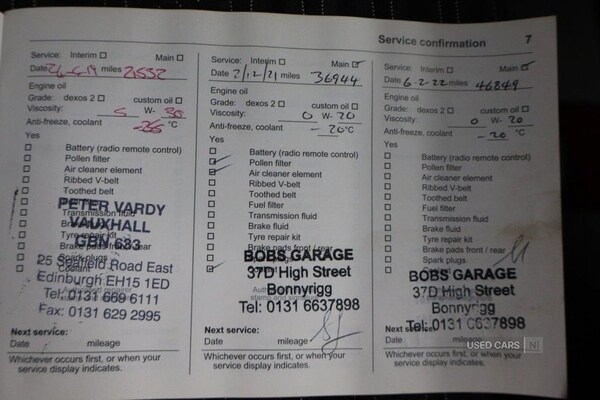 Service confirmation 7
Service: Interim Main
Date 26-6-19 miles 21532
Engine oil
Grade: dexos 2 custom oil
Viscosity: 5 W- 30
Anti-freeze, coolant °C
Yes
Battery (radio remote control)
Pollen filter
Air cleaner element
Ribbed V-belt
Toothed belt
Fuel filter
Transmission fluid
Brake fluid
Tyre repair kit
Brake pads front / rear
Spark plugs
Coolant
PETER VARDY
VAUXHALL
GBN 683
25 Seafield Road East
Edinburgh EH15 1ED
Tel: 0131 669 6111
Fax: 0131 629 2995
Next service:
Date mileage
Whichever occurs first, or when your
service display indicates.
Service: Interim Main
Date 2/12/21 miles 36944
Engine oil
Grade: dexos 2 custom oil
Viscosity: 0 W- 20
Anti-freeze, coolant - 20°C
Yes
Battery (radio remote control)
Pollen filter
Air cleaner element
Ribbed V-belt
Toothed belt
Fuel filter
Transmission fluid
Brake fluid
Tyre repair kit
Brake pads front / rear
BOBS GARAGE
37D High Street
Bonnyrigg
Tel: 0131 6637898
Next service:
Date mileage
Whichever occurs first, or when your
service display indicates.
Service: Interim Main
Date 6-2-22 miles 46849
Engine oil
Grade: dexos 2 custom oil
Viscosity: 0 W- 20
Anti-freeze, coolant - 20 °C
Yes
Battery (radio remote control)
Pollen filter
Air cleaner element
Ribbed V-belt
Toothed belt
Fuel filter
Transmission fluid
Brake fluid
Tyre repair kit
Brake pads front / rear
Spark plugs
Coolant
BOBS GARAGE
37D High Street
Bonnyrigg
Tel: 0131 6637898
Next service:
Date mileage
Whichever occurs first, or when your
service display indicates.
USED CARS NI